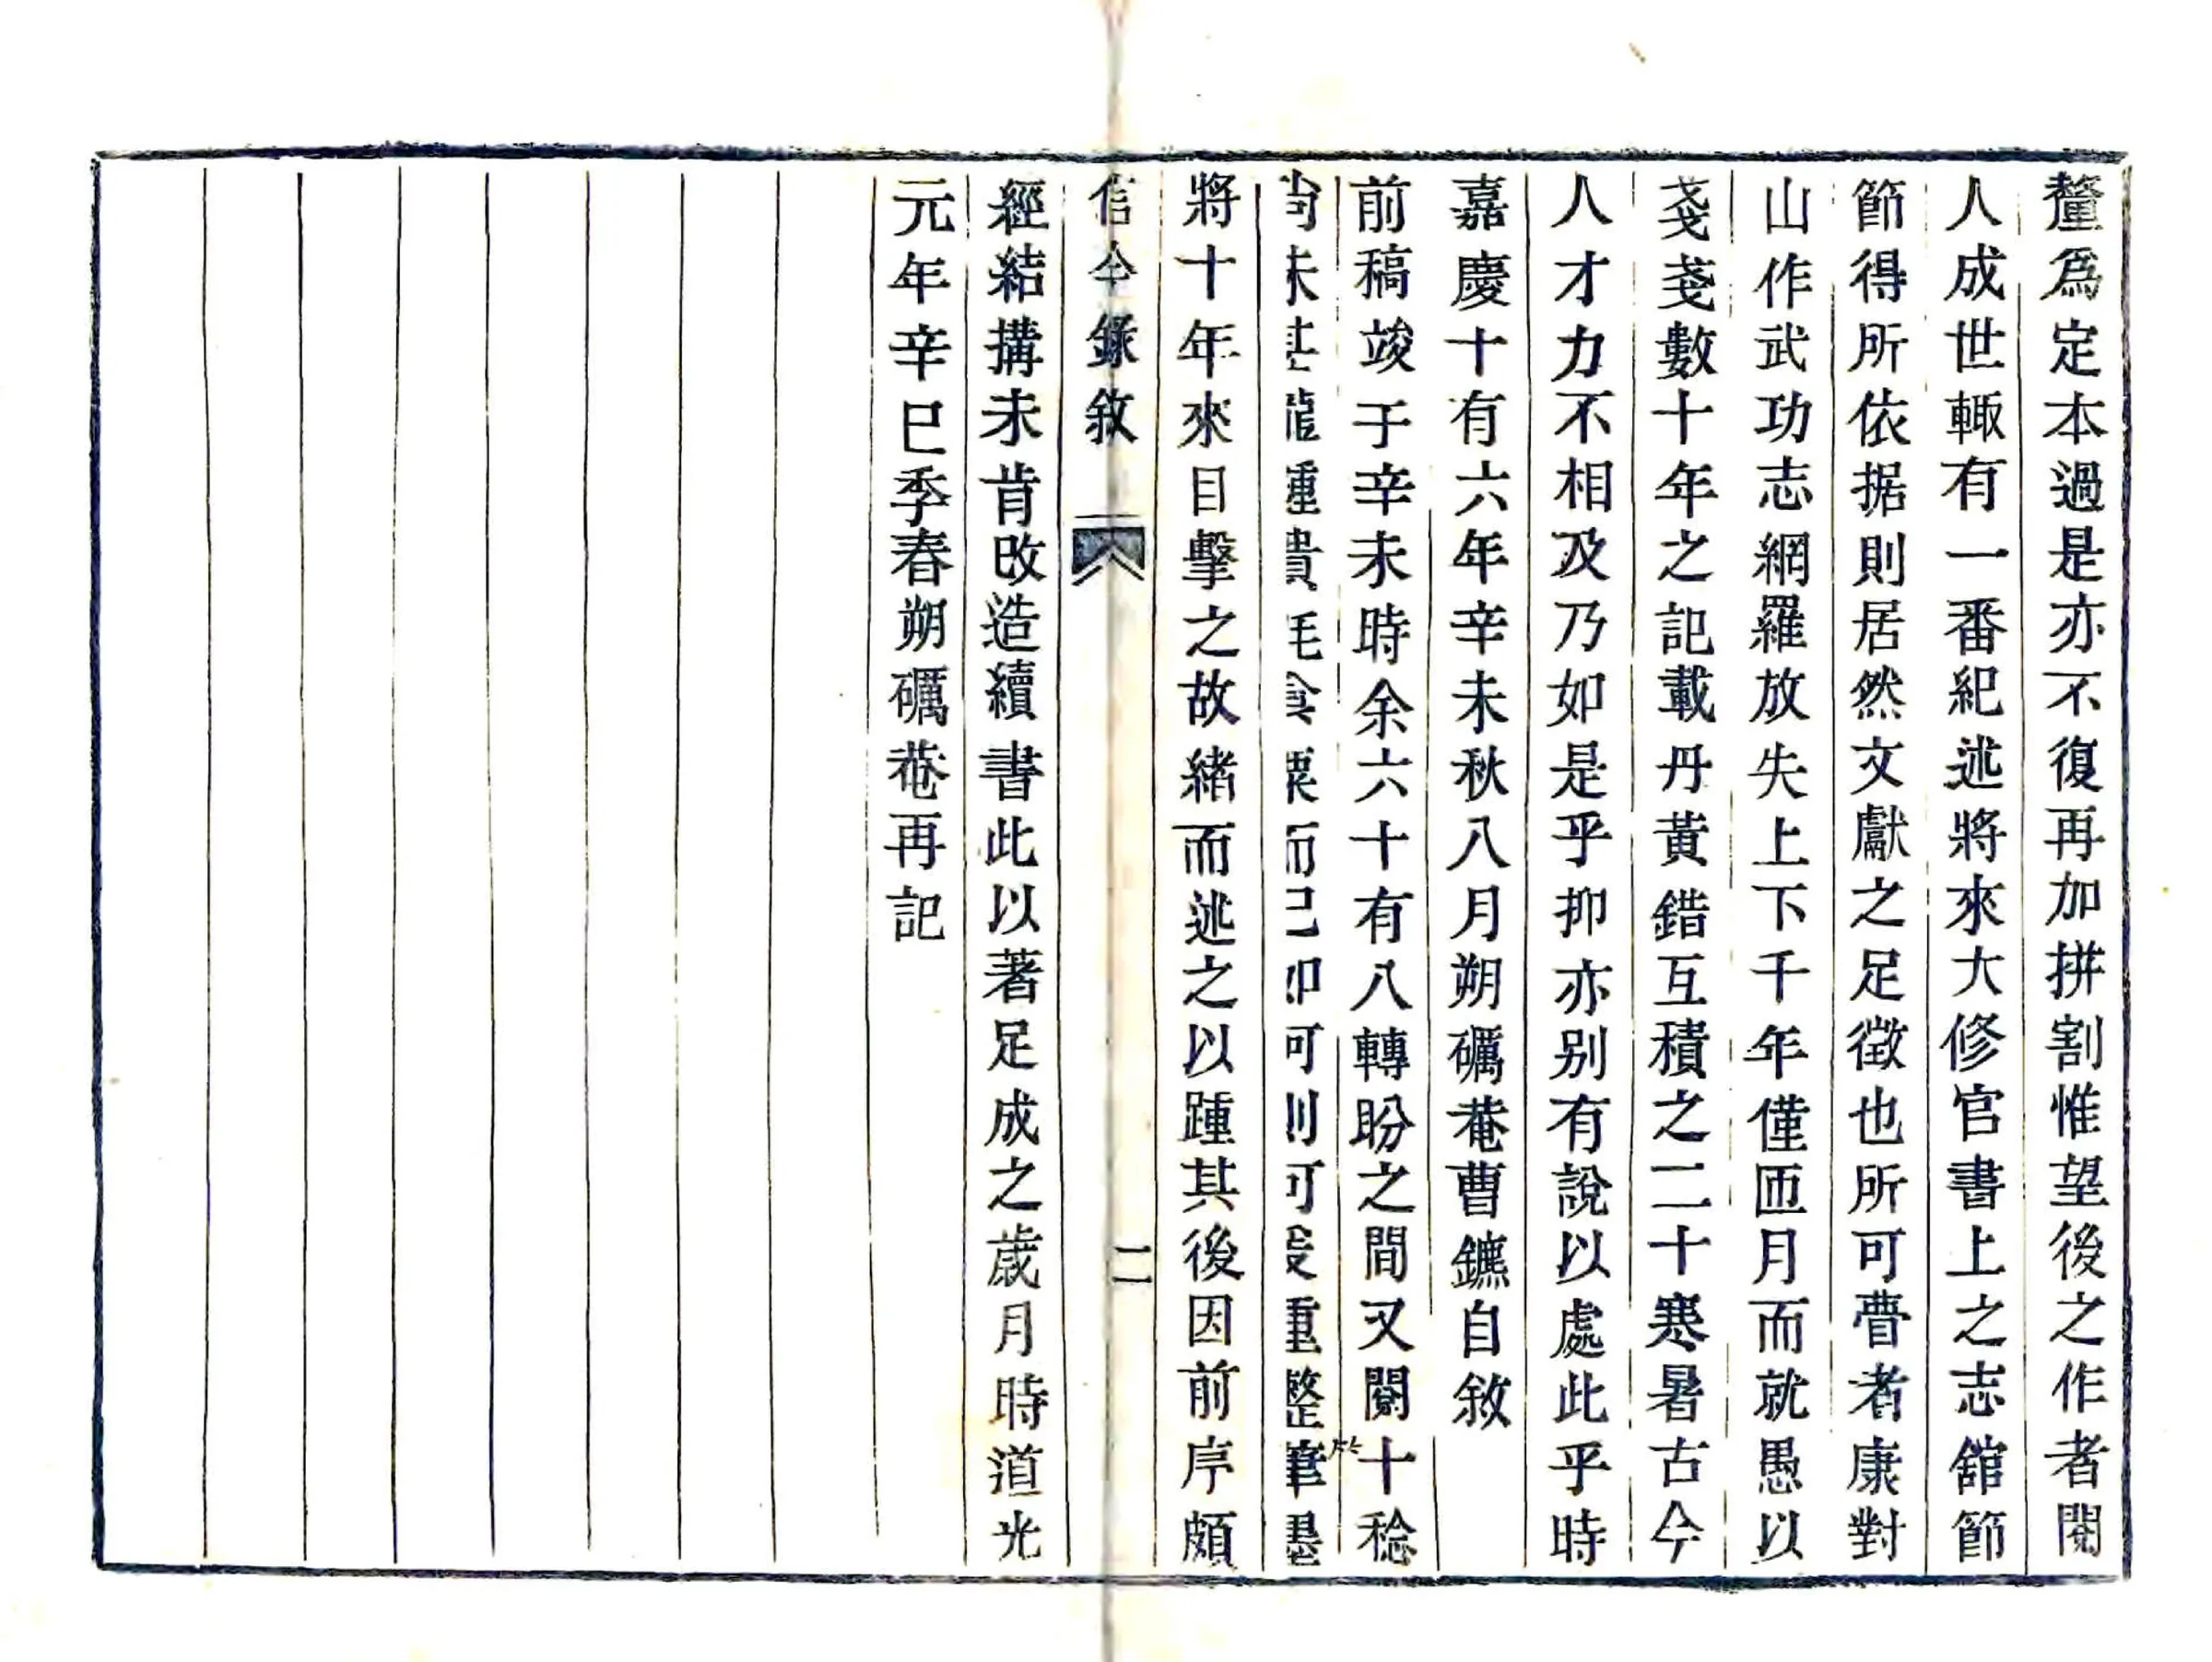 釐爲定本過是亦不復再加拼割惟望後之作者閱
人成世輙有一番紀述將來大修官書上之志舘節
節得所依据則居然文獻之足徵也所可瞢者康對
山作武功志網羅放失上下千年僅匝月而就愚以
戔戔數十年之記載丹黃錯互積之二十寒暑古今
人才力不相及乃如是乎抑亦别有說以處此乎時
嘉慶十有六年辛未秋八月朔礪菴曹鑣自敘
前稿竣于辛未時余六十有八轉盼之間又閱十稔
尚未甚龍鍾貴耗食粟而已即可則可爰重整筆墨
將十年來目擊之故緒而述之以踵其後因前序頗
信今錄敘 二
經結搆未肯改造續書此以著足成之歲月時道光
元年辛巳季春朔礪菴再記